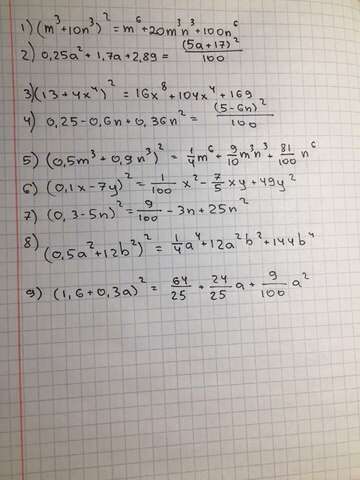 1) (m³+10n³)² = m⁶+20m³n³+100n⁶
2) 0,25a²+1,7a+2,89 = (5a+17)²/100
3) (13+4x⁴)² = 16x⁸+104x⁴+169
4) 0,25-0,6n+0,36n² = (5-6n)²/100
5) (0,5m³+0,9n³)² = 1/4m⁶+9/10m³n³+81/100n⁶
6) (0,1x-7y)² = 1/100x²-7/5xy+49y²
7) (0,3-5n)² = 9/100-3n+25n²
8) (0,5a²+12b²)² = 1/4a⁴+12a²b²+144b⁴
9) (1,6+0,3a)² = 64/25+24/25a+9/100a²